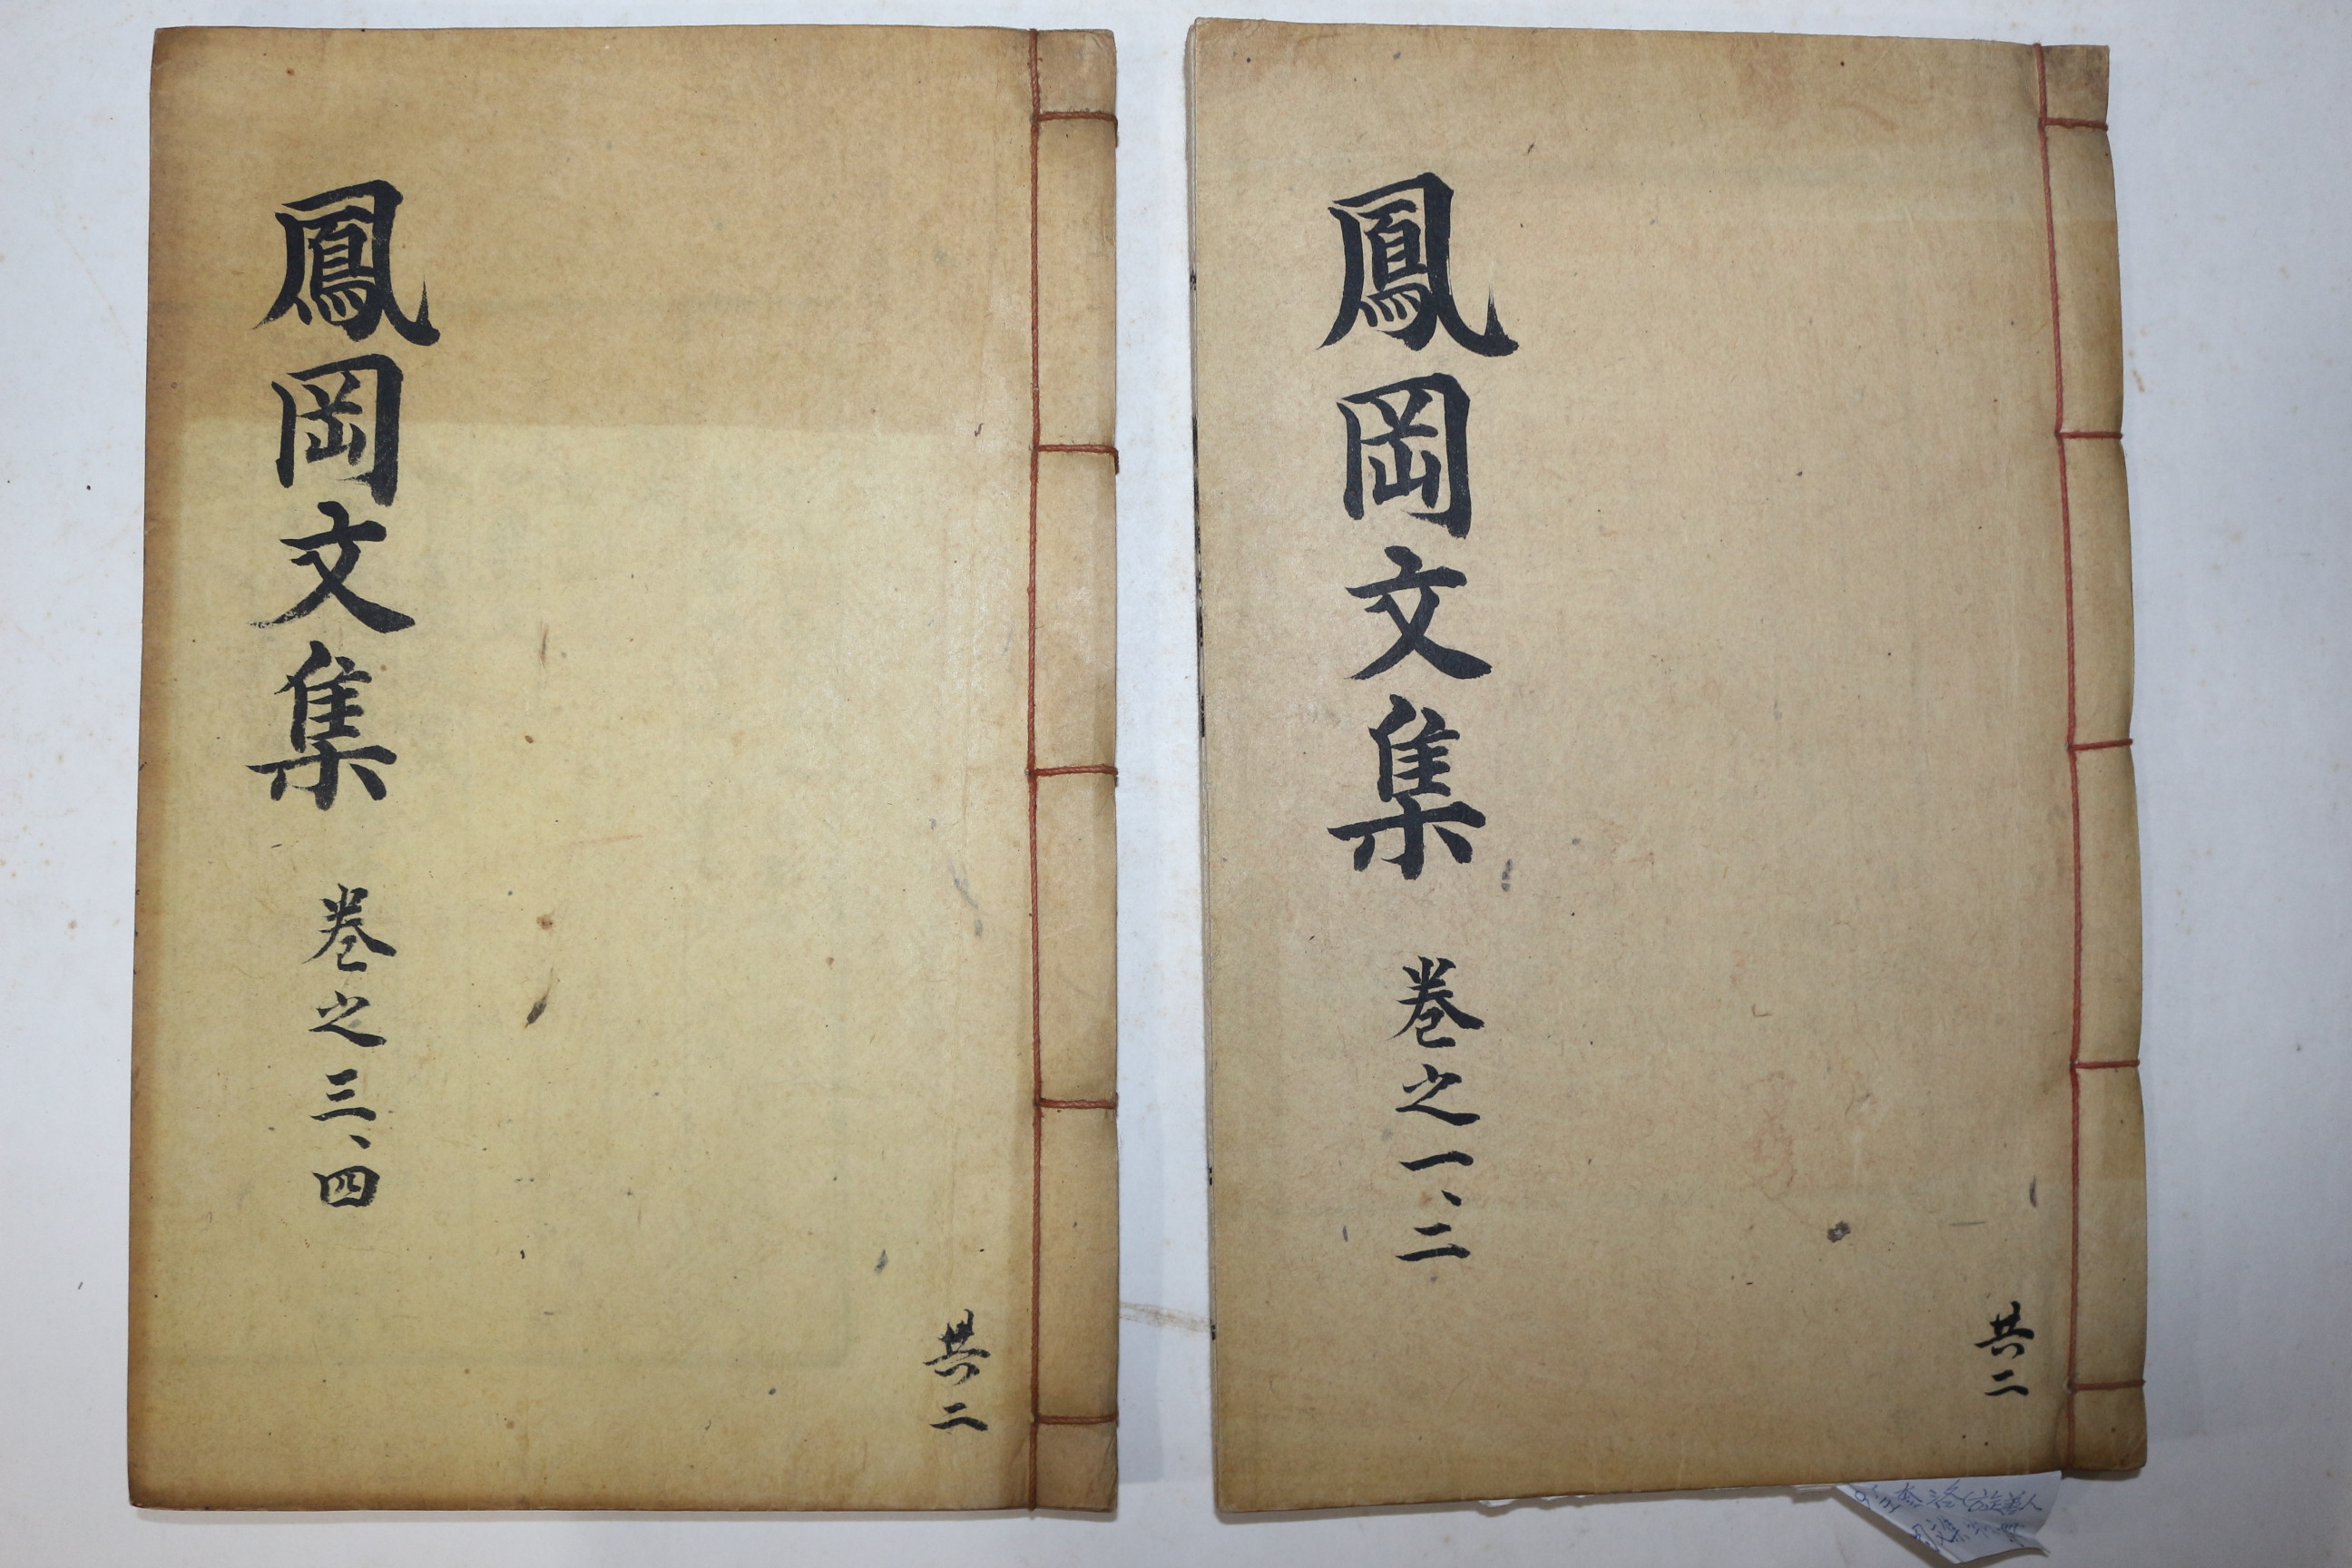 鳳岡文集 卷之一、二
共二
鳳岡文集 卷之三、四
共二